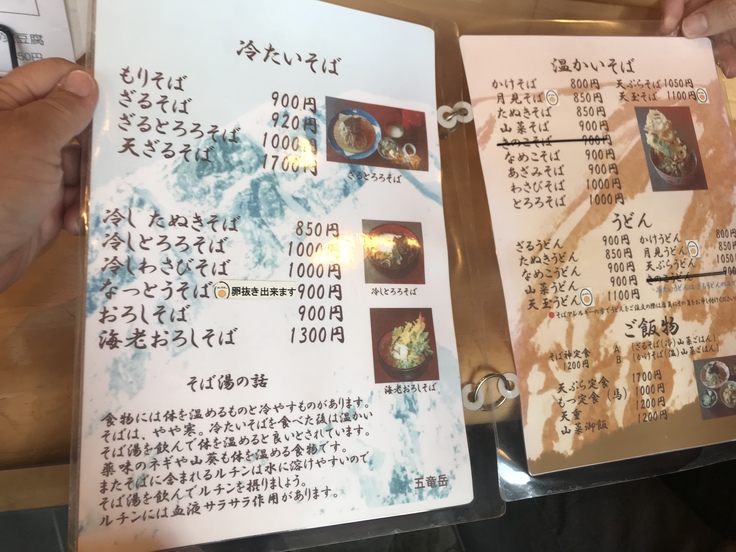 豆腐
50円
冷たいそば
もりそば 900円
ざるそば 920円
ざるとろろそば 1000円
天ざるそば 1700円
ざるとろろそば
冷し たぬきそば 850円
冷しとろろそば 1000円
冷しわさびそば 1000円
なっとうそば 卵抜き出来ます 900円
おろしそば 900円
海老おろしそば 1300円
冷しとろそば
海老おろしそば
そば湯の話
食物には体を温めるものと冷やすものがあります。
そばは、やや寒。冷たいそばを食べた後は温かい
そば湯を飲んで体を温めると良いとされています。
薬味のネギや山葵も体を温める食物です。
またそばに含まれるルチンは水に溶けやすいので
そば湯を飲んでルチンを摂りましょう。
ルチンには血液サラサラ作用があります。
五竜岳
温かいそば
かけそば 800円
月見そば 850円
たぬきそば 850円
山菜そば 900円
きのこそば 900円
なめこそば 900円
あざみそば 900円
わさびそば 1000円
とろろそば 1000円
天ぷらそば 1050円
天玉そば 1100円
うどん
ざるうどん 900円
たぬきうどん 850円
なめこうどん 900円
山菜うどん 900円
天玉うどん 1100円
かけうどん 800円
月見うどん 850円
天ぷらうどん 1050円
ご飯物
そば神定食
1200円
A (ざるそば(冷)山菜ごはん)
B (かけそば(温)山菜ごはん)
天ぷら定食 1700円
もつ定食(馬) 1000円
天重 1200円
山菜御飯 200円